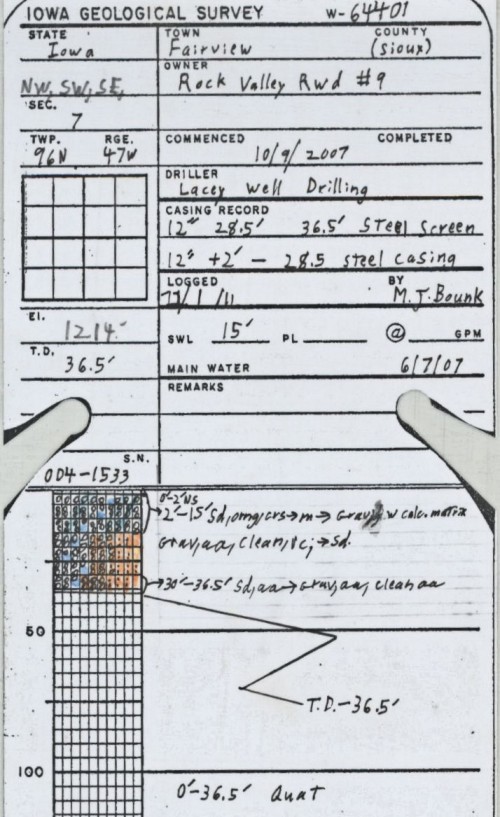 IOWA GEOLOGICAL SURVEY W-64401
STATE TOWN COUNTY
Iowa Fairview (Sioux)
OWNER
NW, SW, SE, Rock Valley Rwd #9
SEC.
7
TWP. RGE. COMMENCED COMPLETED
96N 47W 10/9/2007
DRILLER
Lacey Well Drilling
CASING RECORD
12" 28.5' 36.5' Steel Screen
12" +2' - 28.5 steel casing
LOGGED BY
/1/11 M.J. Bounk
El.
1214' SWL 15' PL @ GPM
T.D.
36.5' MAIN WATER 6/7/07
REMARKS
S.N.
004-1533
0'-2' NS
2'-15' Sd, omg, crs→m→Grav, w calc. matrix
Grav, aa, clean, → Sd.
30'-36.5' Sd, aa→Grav, aa, clean aa
50
T.D.-36.5'
100
0'-36.5' Quat